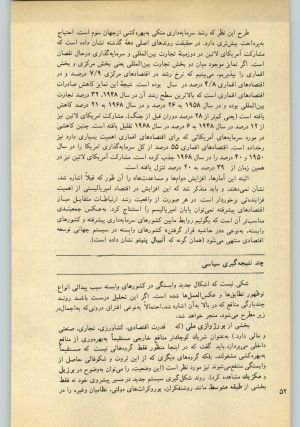 طرح این نظر که رشد سرمایه‌داری متکی به‌بهره‌کشی ازجهان سوم است، احتیاج
به‌پرداخت بیش‌تری دارد. در حقیقت روندهای اصلی دههٔ گذشته نشان داده است که
مشارکت آمریکای لاتین در دوزمینهٔ تجارت بین‌المللی و سرمایه‌گذاری درحال نقصان
است. اگر تمایز موجود میان دو بخش تجارت بین‌المللی یعنی بخش مرکزی و بخش
اقماری را بپذیریم، می‌بینیم که نرخ رشد در اقتصادهای مرکزی ۷/۹ درصد و در
اقتصادهای اقماری ۴/۸ درصد در سال بوده است. نتیجهٔ این تمایز کاهش صادرات
اقتصادهای اقماری است که بالاترین سطح رشد آن در سال ۱۹۴۸، ۳۲ درصد تجارت
بین‌المللی بوده و در سال ۱۹۵۸ به ۲۶ درصد و در ۱۹۶۸ به ۲۱ درصد کاهش
یافته است (یعنی کم‌تر از ۲۸ درصد دوران قبل از جنگ). مشارکت آمریکای لاتین نیز
از ۱۲ درصد در سال ۱۹۴۸ به ۶ درصد در سال ۱۹۶۸ تقلیل یافته است. چنین کاهشی
در مورد سرمایه‌هائی که برای اقتصادهای اقماری اهمیت بسیاری دارد نیز
رخداده است. اقتصادهای اقماری ۵۵ درصد از کل سرمایه‌گذاری امریکا را در سال
۱۹۵۰ و ۴۰ درصد را در ۱۹۶۸ جذب کرده است. مشارکت آمریکای لاتین نیز در
همین زمان از ۳۹ درصد به ۲۰ درصد تنزل یافته است.
البته این آمارها، افزایش «وام‌ها و مساعدت‌ها» را آن طور که قبلاً اشاره شد،
نشان نمی‌دهند، و باید متذکر شد که این افزایش در اقتصاد امپریالیستی از اهمیت
فزاینده‌ئی برخوردار است. در هر صورت از واقعیت رشد ارتباطات متقابل میان
اقتصادهای پیشرفته نمی‌توان پایان امپریالیسم را استنتاج کرد. به‌عکس جمعبندی
مناسب‌تر آن است که بگوئیم روابط مابین کشورهای سرمایه‌داری پیشرفته و کشورهای
وابسته، به‌نوعی «در حاشیه قرار گرفتن» کشورهای وابسته در سیستم جهانی توسعه
اقتصادی منتهی می‌شود (همان گونه که آنیبال پینیتو نشان داده است).
چند نتیجه‌گیری سیاسی
شکی نیست که اشکال جدید وابستگی در کشورهای وابسته سبب پیدائی انواع
نوظهور تطابق‌ها و عکس‌العمل‌ها شده است. اگر این تحلیل درست باشد روند
چندپارگی منافع که در بالا به‌آن اشاره شد، احتمالا به‌نوعی افتراق درونی‌که به‌اجمال‌در
زیر مطرح می‌شود منجر خواهد شد.
بخشی از بورژوازی ملی (که قدرت اقتصادی، کشاورزی، تجاری، صنعتی
و مالی دارد) به‌عنوان شریك کوچکتر منافع خارجی مستقیماً بهره‌وری از منافع
داخلی می‌پردازد. باید گفت که در اینجا منظور فقط گروه‌هائی نیست که مستقیماً
به‌بهره‌کشی مشغولند، بلکه گروه‌های دیگری که از این ثروت و شکوفائی حاصل از
وابستگی منتفع‌می‌شوند نیز مورد نظر است (این وضعیت را می‌توان به‌وضوح در برزیل
و مکزیك مشاهده کرد). روند شکل‌گیری سیستم جدید در مسیر پیشروی خود به فقط
بخشی از طبقه متوسط مانند روشنفکران، بوروکراتهای دولتی، نظامیان وغیره را در
۵۲